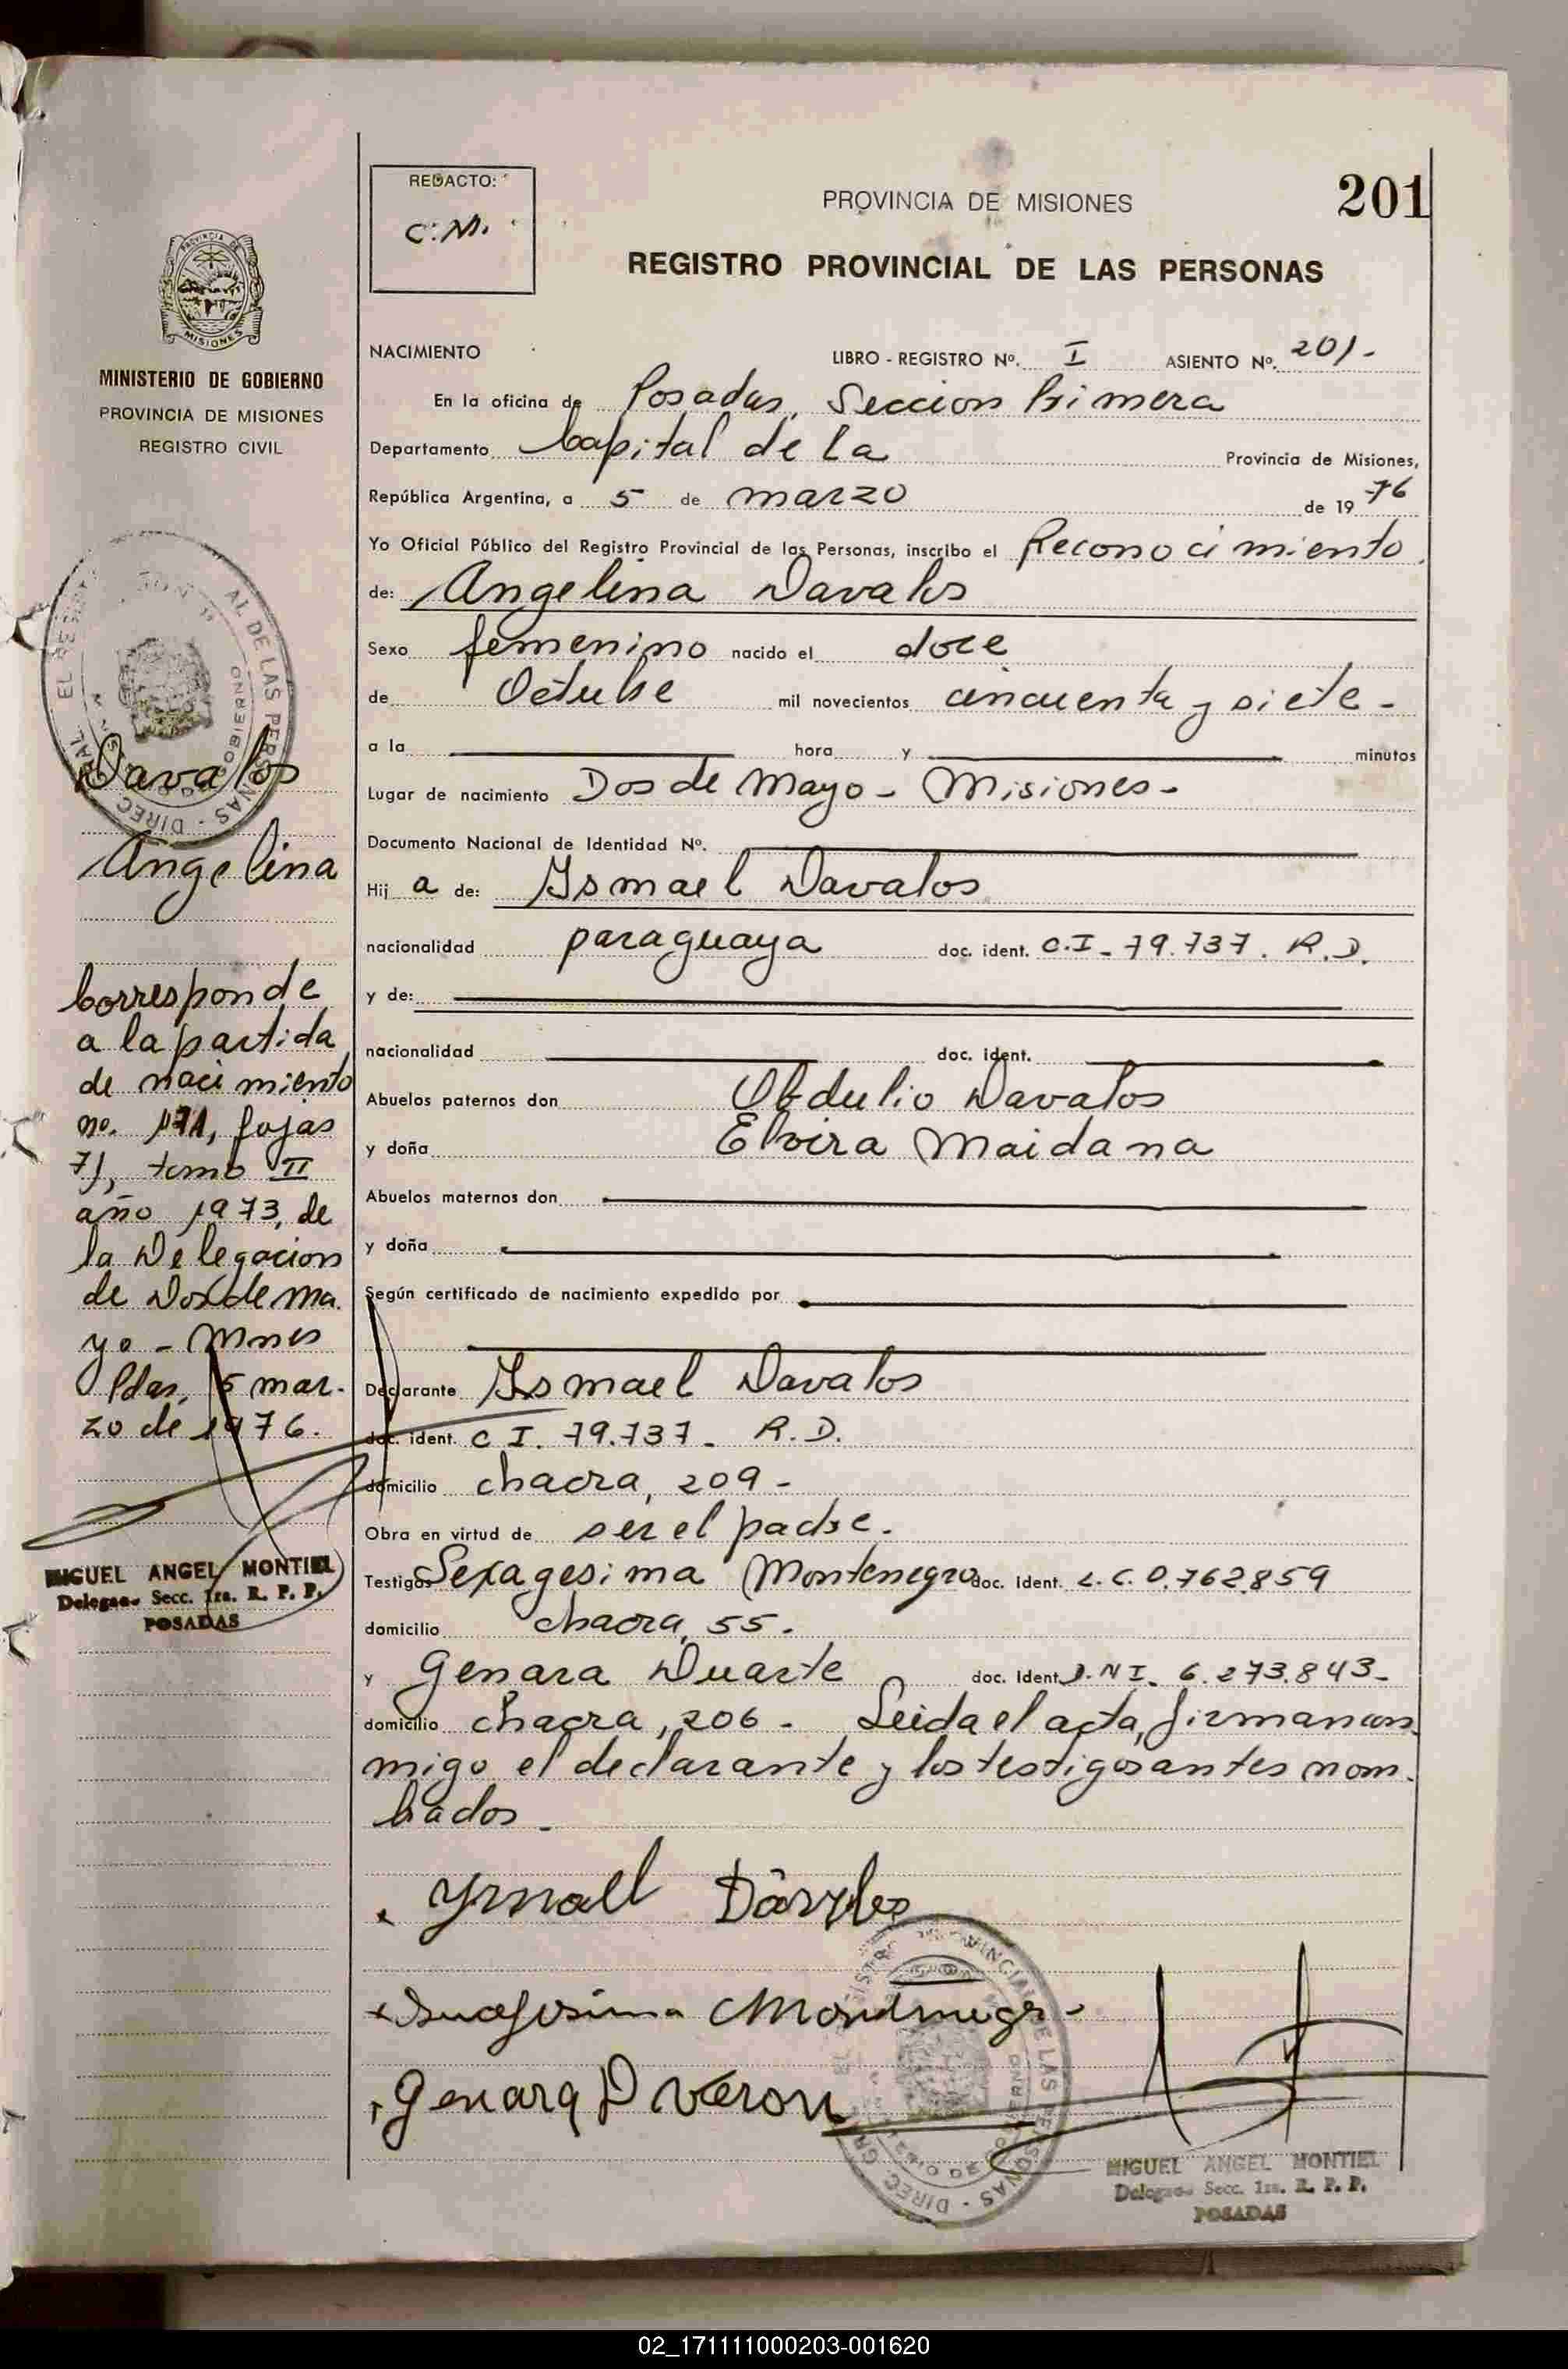 REDACTO:
C.M.
PROVINCIA DE MISIONES
201
REGISTRO PROVINCIAL DE LAS PERSONAS
MINISTERIO DE GOBIERNO
PROVINCIA DE MISIONES
REGISTRO CIVIL
Davalos
Angelina
Corresponde
a la partida
de nacimiento
no. 171, fojas
71, tomo II
año 1973, de
la Delegacion
de Dos de Ma.
yo - Mnes
Pdas, 5 mar-
zo de 1976.
MIGUEL ANGEL MONTIEL
Delegado Secc. 1ra. R. P. P.
POSADAS
NACIMIENTO LIBRO - REGISTRO Nº. I ASIENTO Nº. 201-
En la oficina de Posadas, Seccion Primera
Departamento Capital de la Provincia de Misiones,
República Argentina, a 5 de marzo de 1976
Yo Oficial Público del Registro Provincial de las Personas, inscribo el Reconocimiento
de: Angelina Davalos
Sexo femenino nacido el doce
de Octubre mil novecientos cincuenta y siete-
a la hora y minutos
Lugar de nacimiento Dos de Mayo - Misiones-
Documento Nacional de Identidad Nº.
Hij a de: Ismael Davalos
nacionalidad paraguaya doc. ident. C.I- 79.737. R.D.
y de:
nacionalidad doc. ident.
Abuelos paternos don Obdulio Davalos
y doña Elvira Maidana
Abuelos maternos don
y doña
Según certificado de nacimiento expedido por
Declarante Ismael Davalos
doc. ident. C I. 79.737- R.D.
domicilio chacra, 209-
Obra en virtud de ser el padre.
Testigos Sexagesima Montenegro doc. Ident. L.C. 0.762.859
domicilio chacra, 55.
y Genara Duarte doc. Ident. D.N I. 6.273.843-
domicilio chacra, 206- Leida el acta, firman con
migo el declarante y los testigos antes nom.
brados.
Ysmaell Dàvalos
Genara D Veron
MIGUEL ANGEL MONTIEL
Delegado Secc. 1ra. R. P. P.
POSADAS
02_171111000203-001620